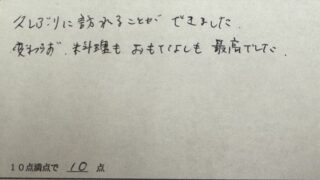 久しぶりに訪れることができました。
変わらず、料理もおもてなしも最高でした。
10点満点で 10 点